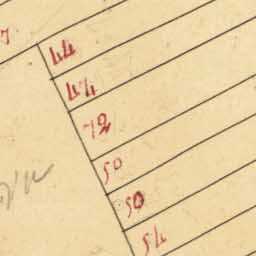 7
44
44
72
50
50
54